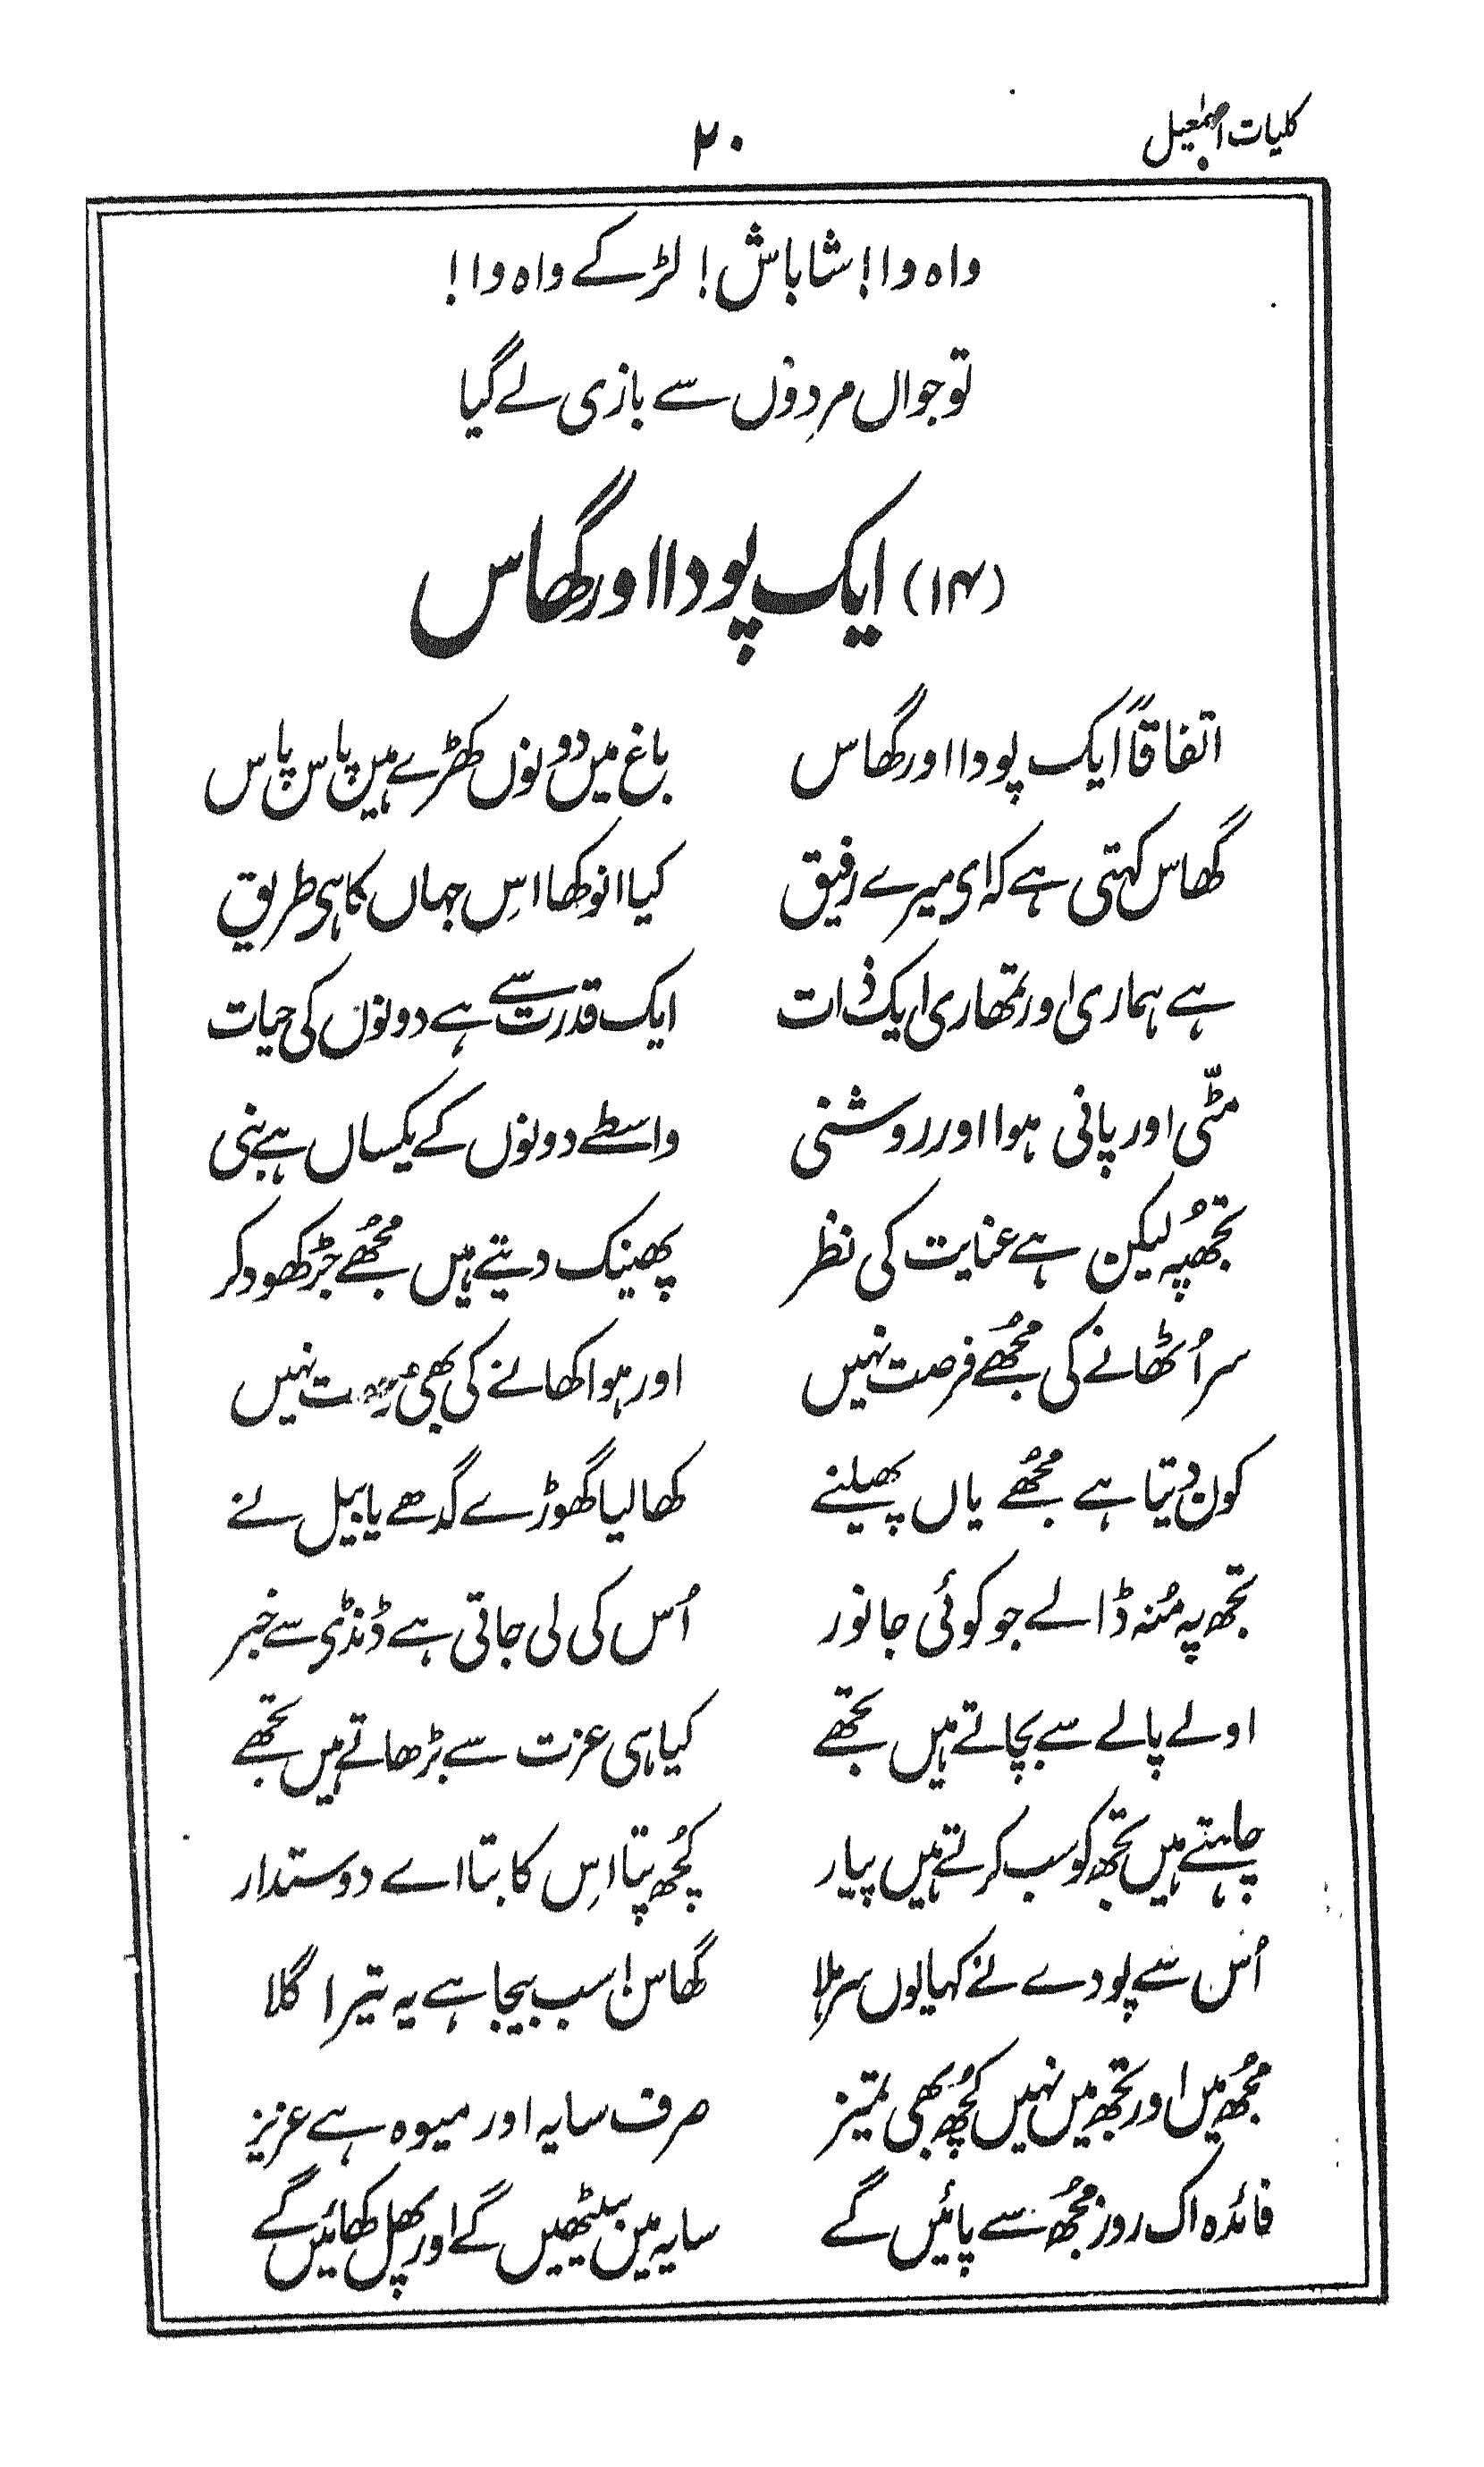 کلیات اسمٰعیل
۲۰
واہ وا! شاباش! لڑکے واہ وا!
تو جواں مردوں سے بازی لے گیا
(۱۴) ایک پودا اور گھاس
اتفاقاً ایک پودا اور گھاس باغ میں دونوں کھڑے ہیں پاس پاس
گھاس کہتی ہے کہ ای میرے رفیق کیا انوکھا اِس جہاں کا ہی طریق
ہے ہماری اور تمھاری ایک ذات ایک قدرت سے ہے دونوں کی حیات
مٹّی اور پانی ہوا اور روشنی واسطے دونوں کے یکساں ہے بنی
تجھ پہ لیکن ہے عنایت کی نظر پھینک دیتے ہیں مجھے جڑ کھود کر
سر اُٹھانے کی مجھے فرصت نہیں اور ہوا کھانے کی بھی نہیں
کون دیتا ہے مجھے یاں پھیلنے کھا لیا گھوڑے گدھے یا بیل نے
تجھ پہ مُنہ ڈالے جو کوئی جانور اُس کی لی جاتی ہے ڈنڈی سے خبر
اولے پالے سے بچاتے ہیں تجھے کیا ہی عزت سے بڑھاتے ہیں تجھے
چاہتے ہیں تجھ کو سب کرتے ہیں پیار کُچھ پتا اِس کا بتا اے دوستدار
اُس سے پودے نے کہا یوں سر ہلا گھاس! سب بیجا ہے یہ تیرا گلا
مُجھ میں اور تجھ میں نہیں کُچھ بھی تمیز صرف سایہ اور میوہ ہے عزیز
فائدہ اک روز مُجھ سے پائیں گے سایہ میں بیٹھیں گے اور پھل کھائیں گے